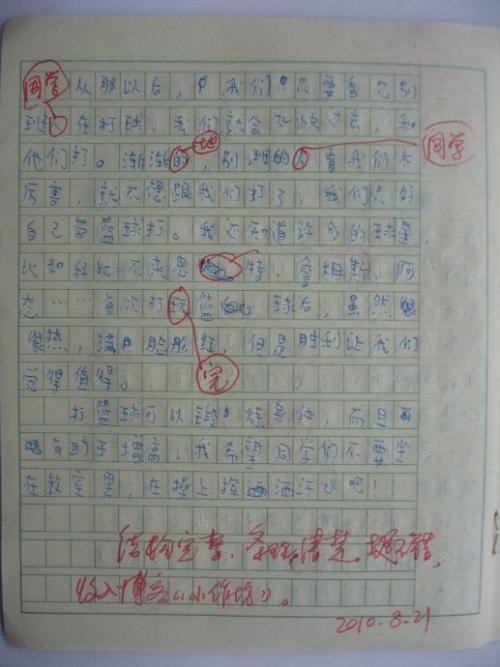 同学 从那以后，我们只要看见别
班人在打球，我们就会飞快过去，和
他们打。渐渐的地，别班的人看我们太 同学
厉害，就不想跟我们打了，我们只好
自己带篮球打。我还知道许多的球星
比如科比 不莱恩 特，詹姆斯，阿
……每次打球篮 球后，虽然
很热，满脸 红，但是胜利让我们
觉得值得。 完
打篮球可以锻炼身体，而且
有助于增高，我希望同学们不要坐
在教室里，在操上挥洒洒汗水吧！
结构完整、条理清楚。 不错，
收入博客《小作坊》。
2010.8.21